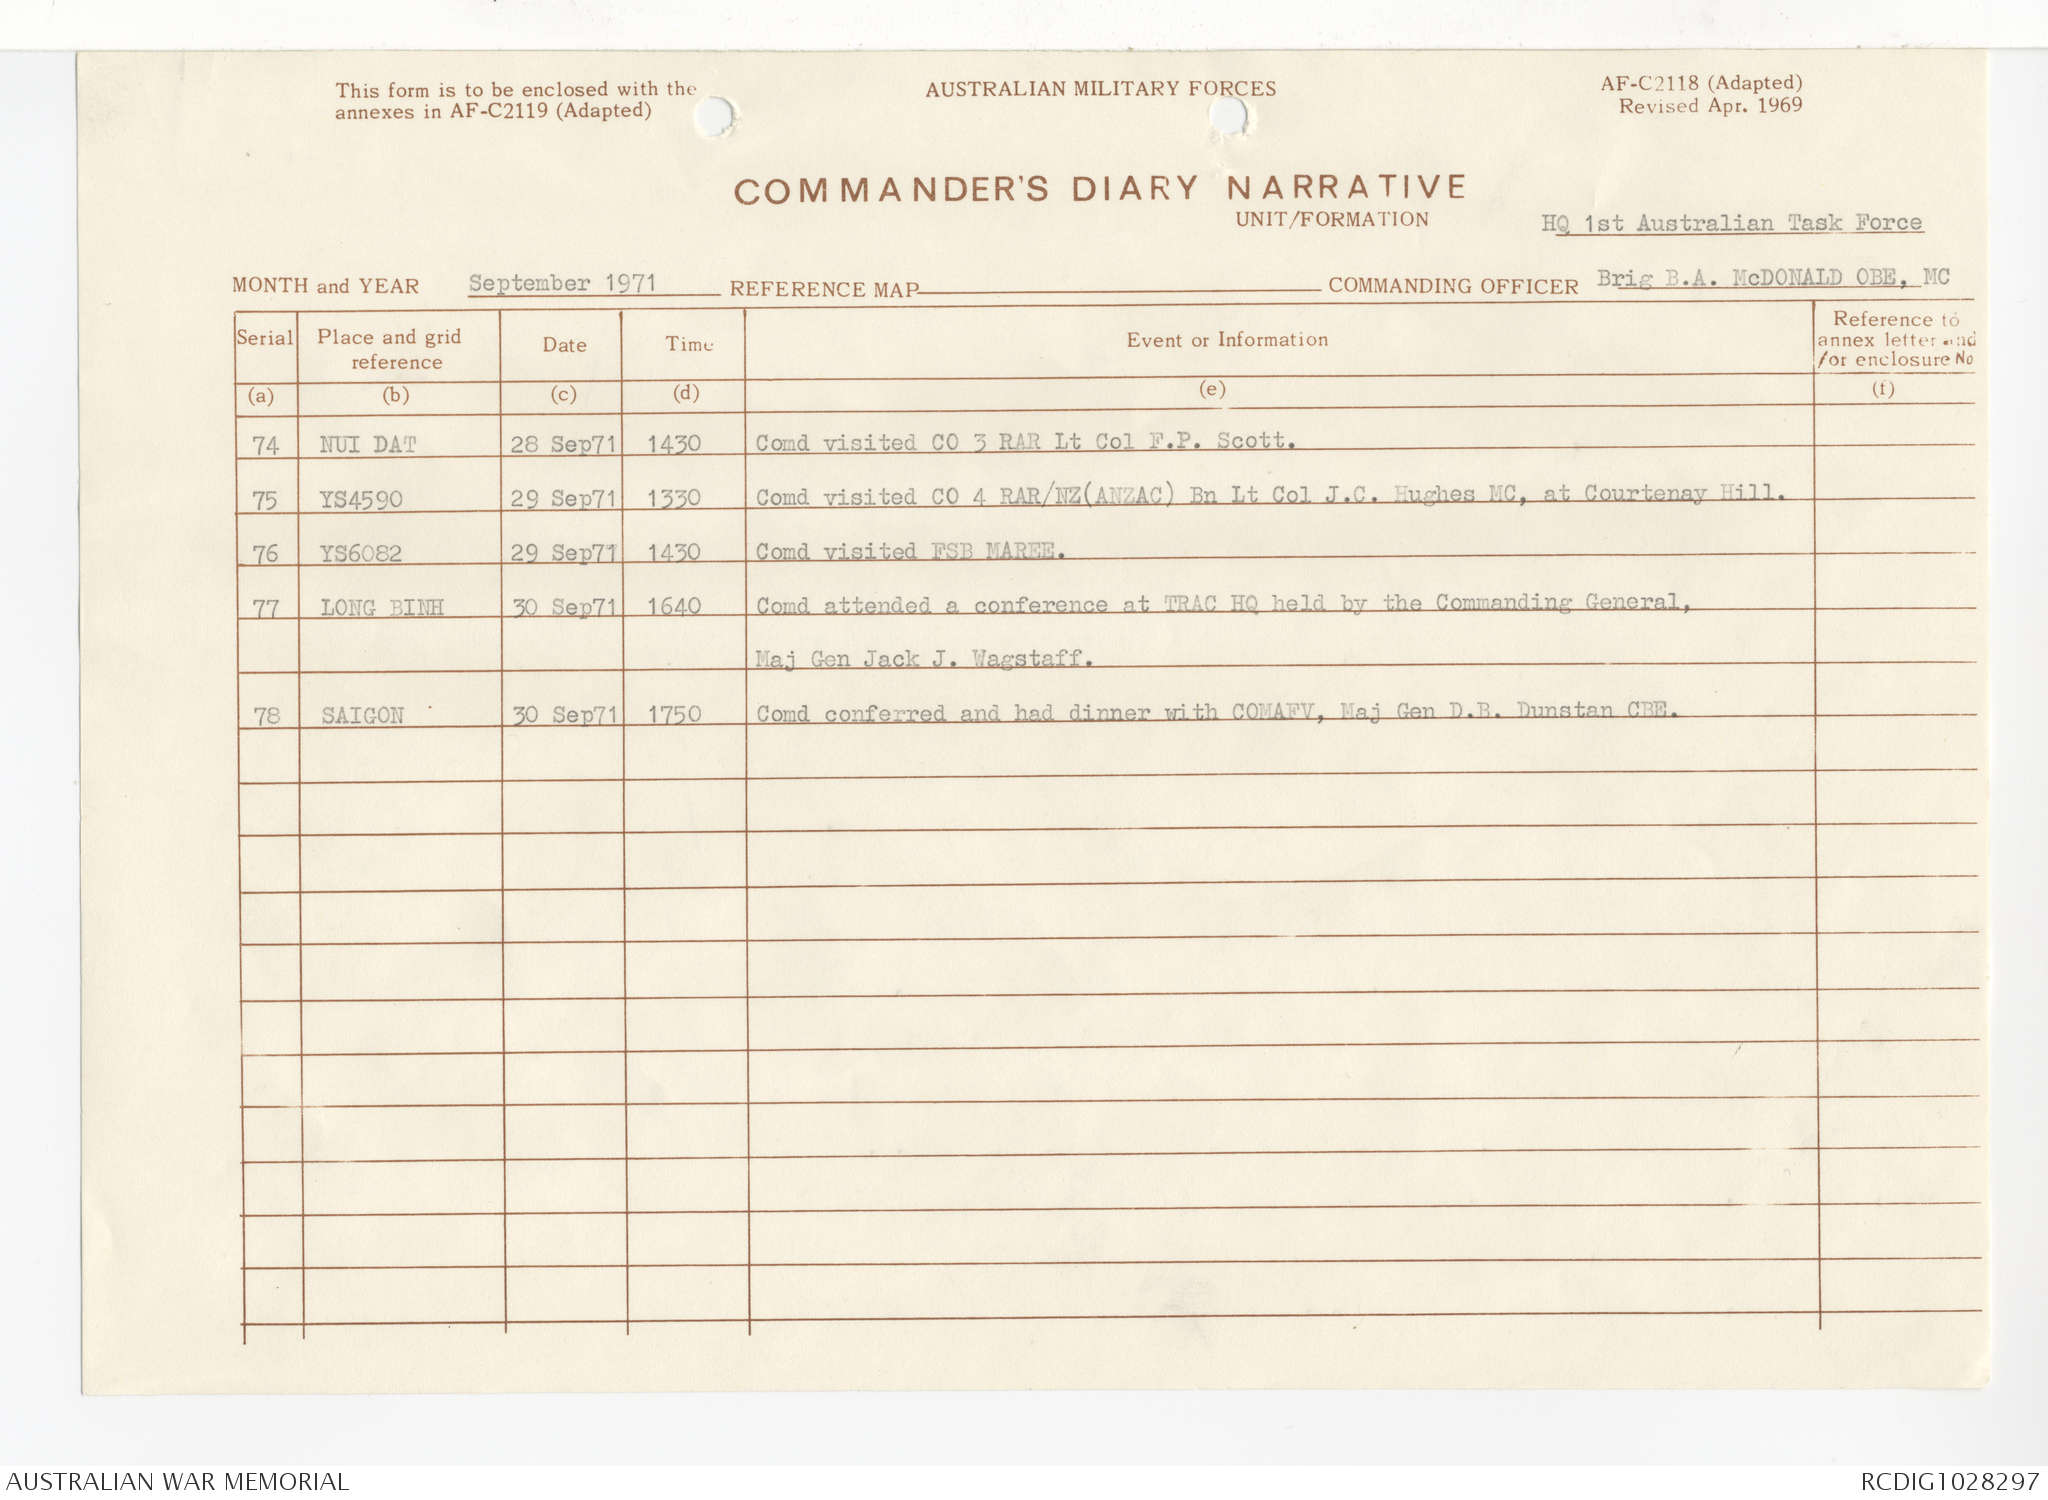 This form is to be enclosed with the
annexes in AF-C2119 (Adapted)
AUSTRALIAN MILITARY FORCES
AF-C2118 (Adapted)
Revised Apr. 1969
COMMANDER'S DIARY NARRATIVE
UNIT/FORMATION HQ 1st Australian Task Force
MONTH and YEAR September 1971 REFERENCE MAP COMMANDING OFFICER Brig B.A. McDONALD OBE, MC
Serial Place and grid reference Date Time Event or Information Reference to annex letter and /or enclosure No
(a) (b) (c) (d) (e) (f)
74 NUI DAT 28 Sep71 1430 Comd visited CO 3 RAR Lt Col F.P. Scott.
75 YS4590 29 Sep71 1330 Comd visited CO 4 RAR/NZ(ANZAC) Bn Lt Col J.C. Hughes MC, at Courtenay Hill.
76 YS6082 29 Sep71 1430 Comd visited FSB MAREE.
77 LONG BINH 30 Sep71 1640 Comd attended a conference at TRAC HQ held by the Commanding General,
Maj Gen Jack J. Wagstaff.
78 SAIGON 30 Sep71 1750 Comd conferred and had dinner with COMAFV, Maj Gen D.B. Dunstan CBE.
AUSTRALIAN WAR MEMORIAL
RCDIG1028297